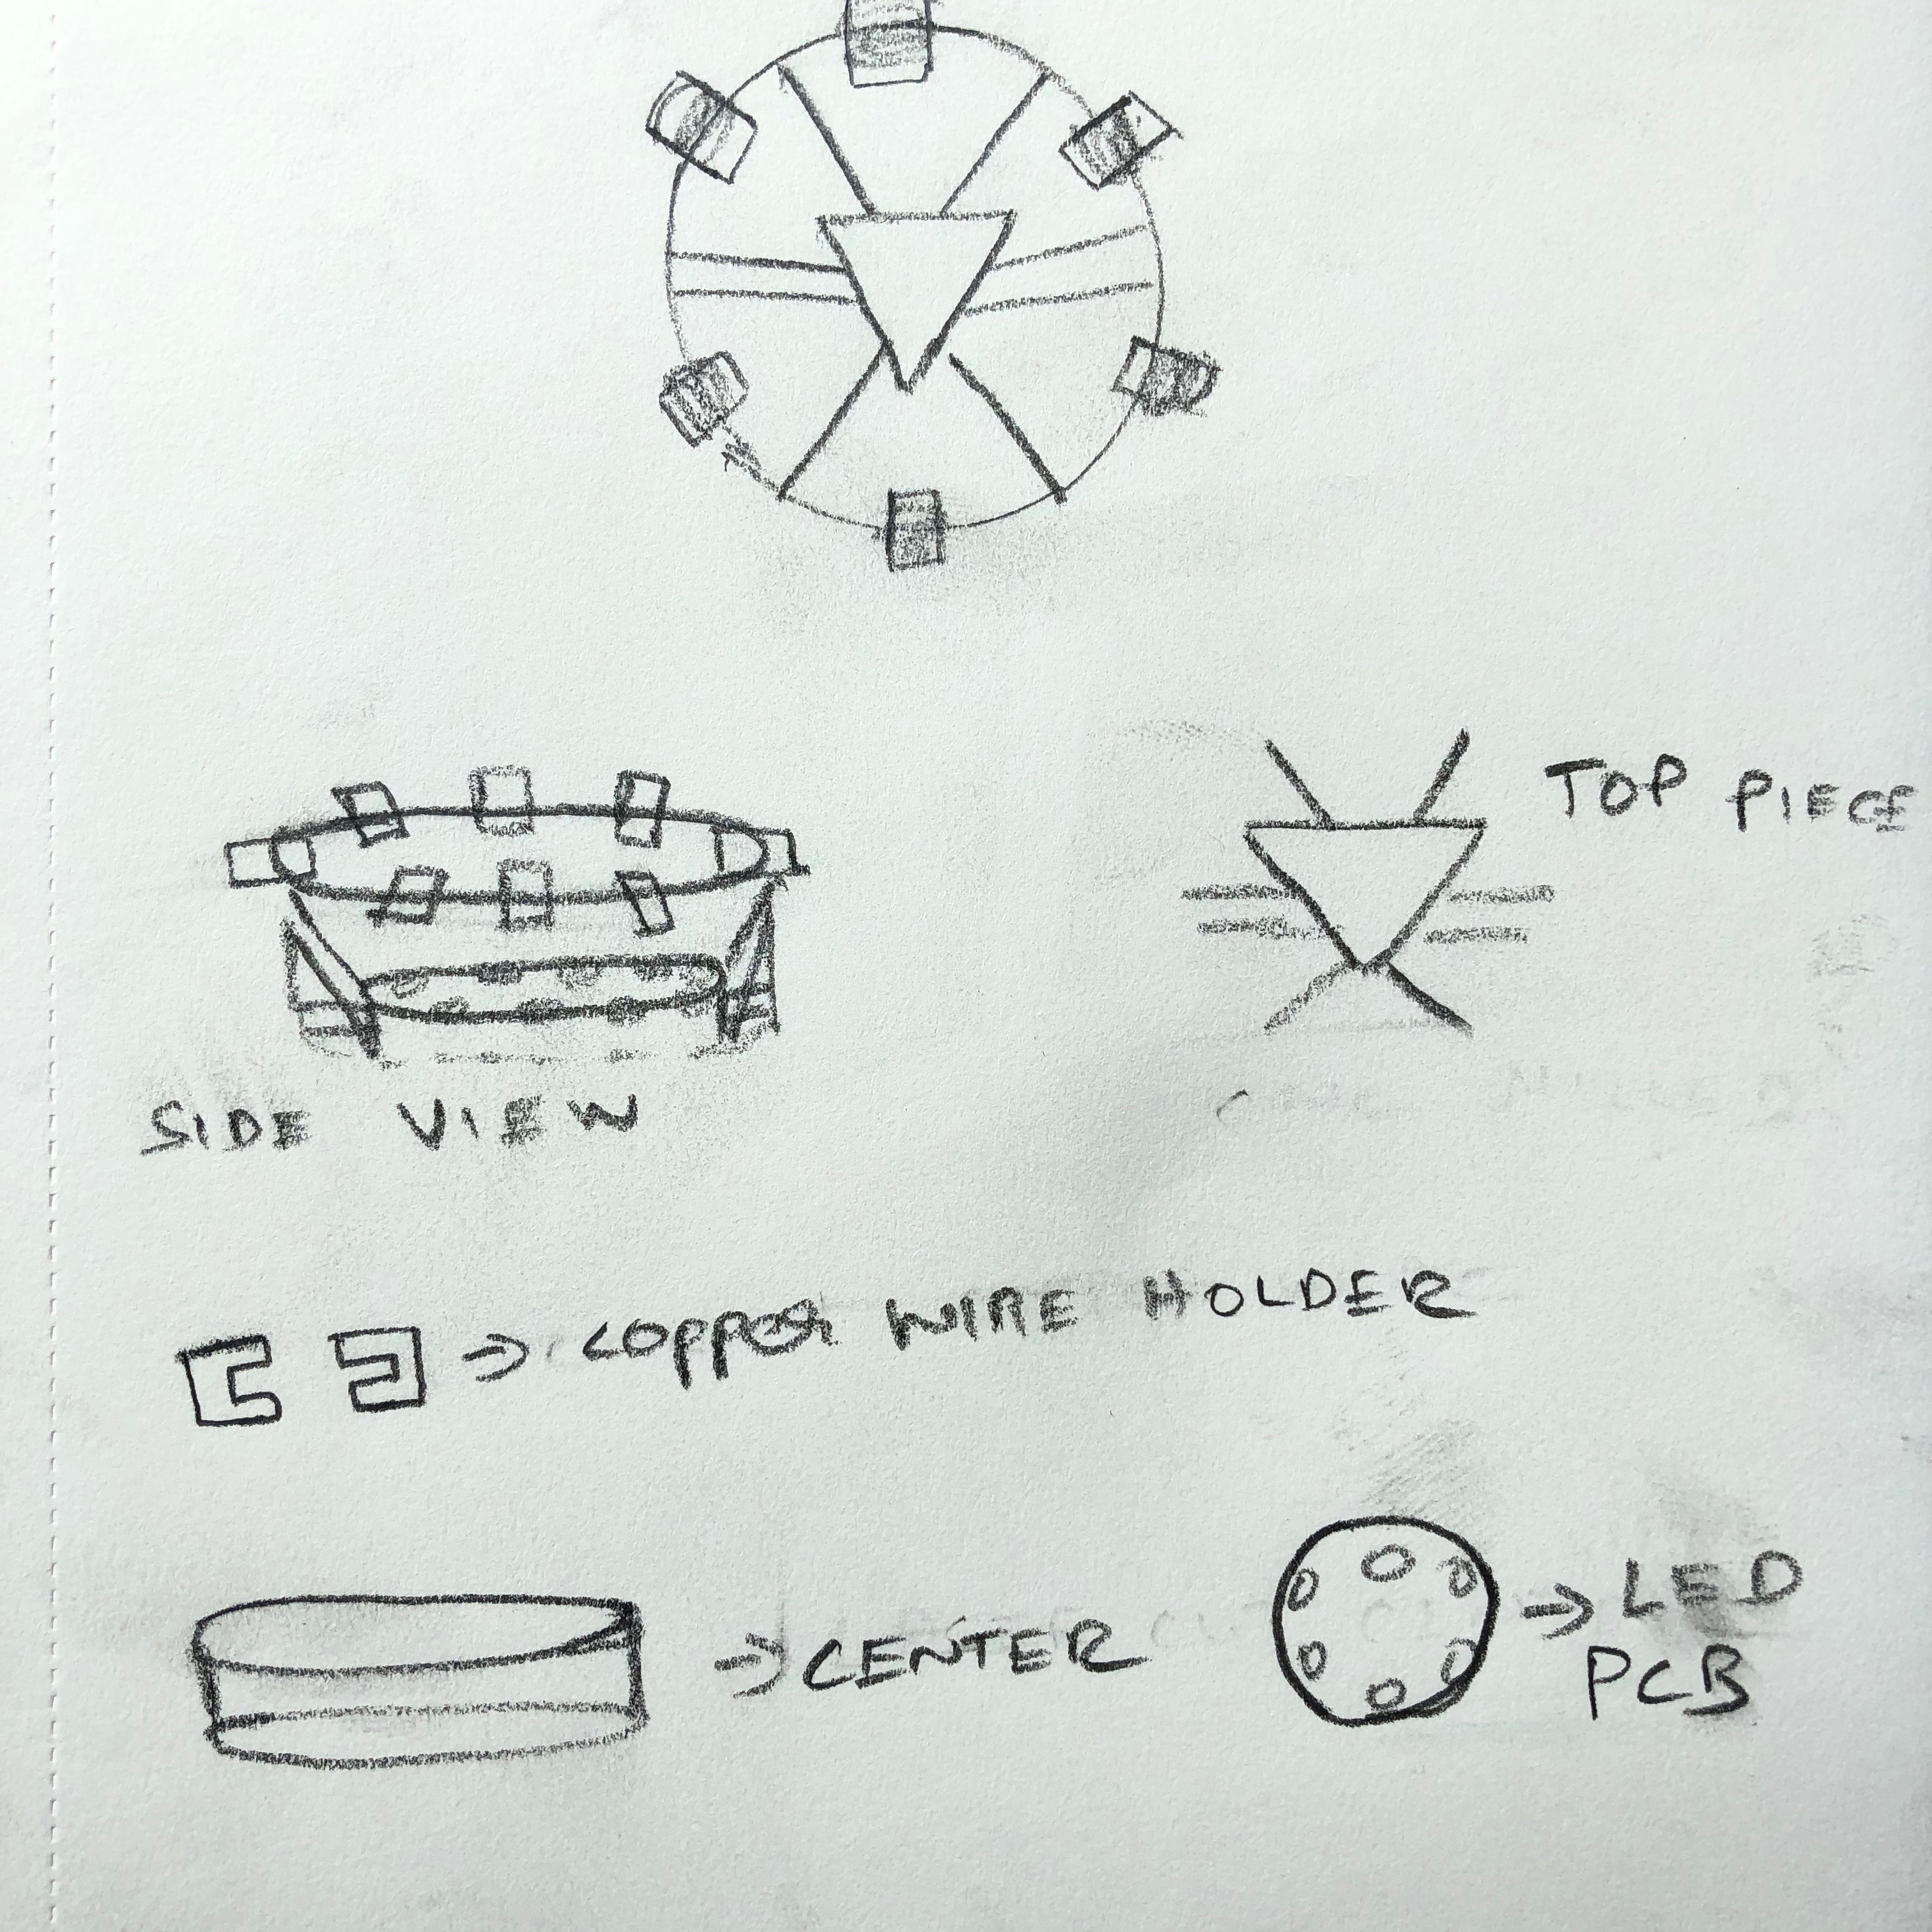 TOP PIECE
SIDE VIEW
→ COPPER WIRE HOLDER
→ CENTER
→ LED
PCB